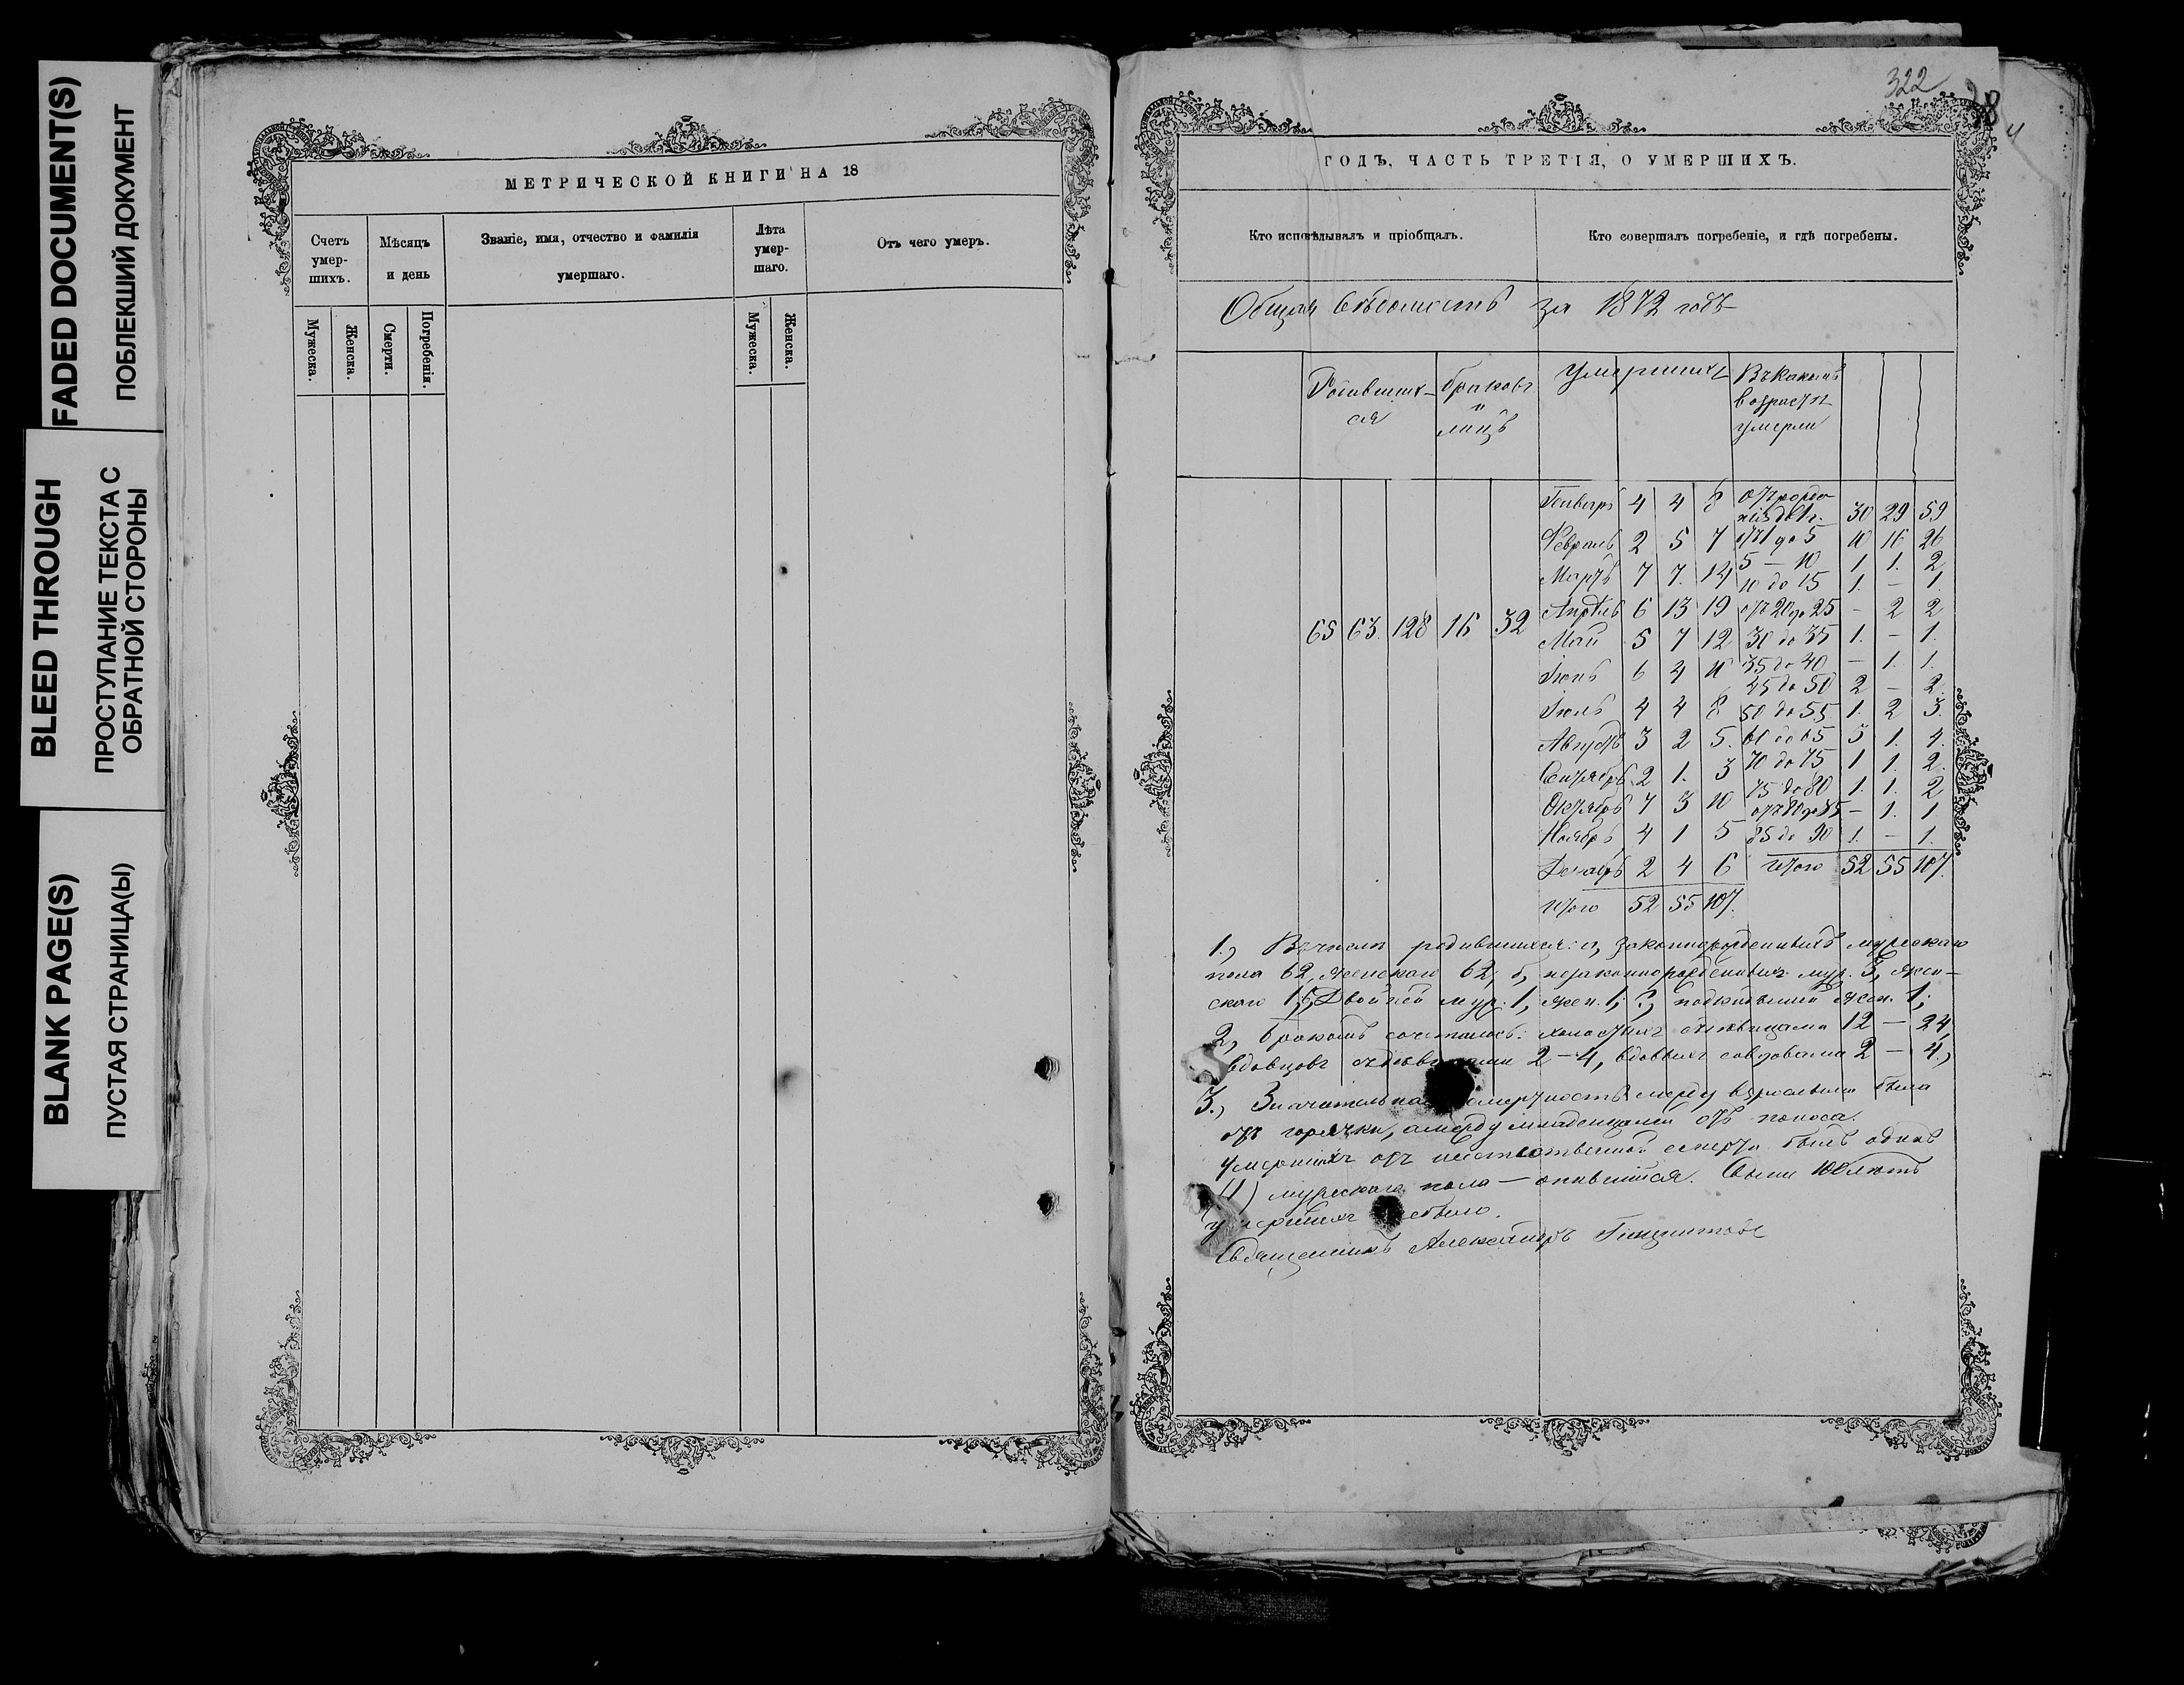 FADED DOCUMENT(S)
ПОБЛЕКШИЙ ДОКУМЕНТ
BLEED THROUGH
ПРОСТУПАНИЕ ТЕКСТА С
ОБРАТНОЙ СТОРОНЫ
BLANK PAGE(S)
ПУСТАЯ СТРАНИЦА(Ы)
МЕТРИЧЕСКОЙ КНИГИ НА 18
Счетъ умер- шихъ.
Мѣсяцъ и день
Званіе, имя, отчество и фамилія умершаго.
Лѣта умер- шаго.
Отъ чего умеръ.
Мужеска. Женска. Смерти. Погребенія. Мужеска. Женска.
322
ГОДЪ, ЧАСТЬ ТРЕТІЯ, О УМЕРШИХЪ.
Кто исповѣдывалъ и пріобщалъ.
Кто совершалъ погребеніе, и гдѣ погребены.
Общая вѣдомость за 1872 годъ
Родивших-
ся
браковъ
и
лицъ
Умершихъ
Въ какомъ
возрастѣ
умерли
65 63. 128 16 32
Генварь 4 4 8 отъ рожде-
нія до 1г. 30 29 59
Февраль 2 5 7 отъ 1 до 5 10 16 26
Мартъ 7 7. 14 5 — 10 1 1. 2
10 до 15 1. — 1.
Апрѣль 6 13 19 отъ 20 до 25 — 2 2
Май 5 7 12 30 до 35 1. — 1.
Іюнь 6 4 10 35 до 40 — 1. 1.
45 до 50 2 — 2.
Іюль 4 4 8 50 до 55 1. 2 3.
Августъ 3 2 5. 61 до 65 3 1. 4.
Сентябрь 2 1. 3 70 до 75 1 1. 2.
Октябрь 7 3 10 75 до 80 1. 1. 2
отъ 80 до 85 — 1. 1
Ноябрь 4 1 5 85 до 90 1. — 1.
Декабрь 2 4 6 Итого 52 55 107.
Итого 52 55 107.
1., Въ числѣ родившихся: а, законнорожденныхъ мужескаго
пола 62, женскаго 62; б, незаконнорожденныхъ муж. 3, жен-
скаго 1; Двойней муж. 1, жен. 1; подкидышей жен. 1;
2, бракомъ сочеталось: холостыхъ съ дѣвицами 12 — 24,
вдовцовъ съ дѣвицами 2 — 4, вдовыхъ со вдовами 2 — 4.,
3., Значительная смертность между взрослыми была
отъ горячки, а между младенцами отъ поноса.
Умершихъ отъ неестественной смерти былъ одинъ
(1) мужескаго пола — опившійся. Свыше 100 лѣтъ
умершихъ не было.
Священникъ Александръ